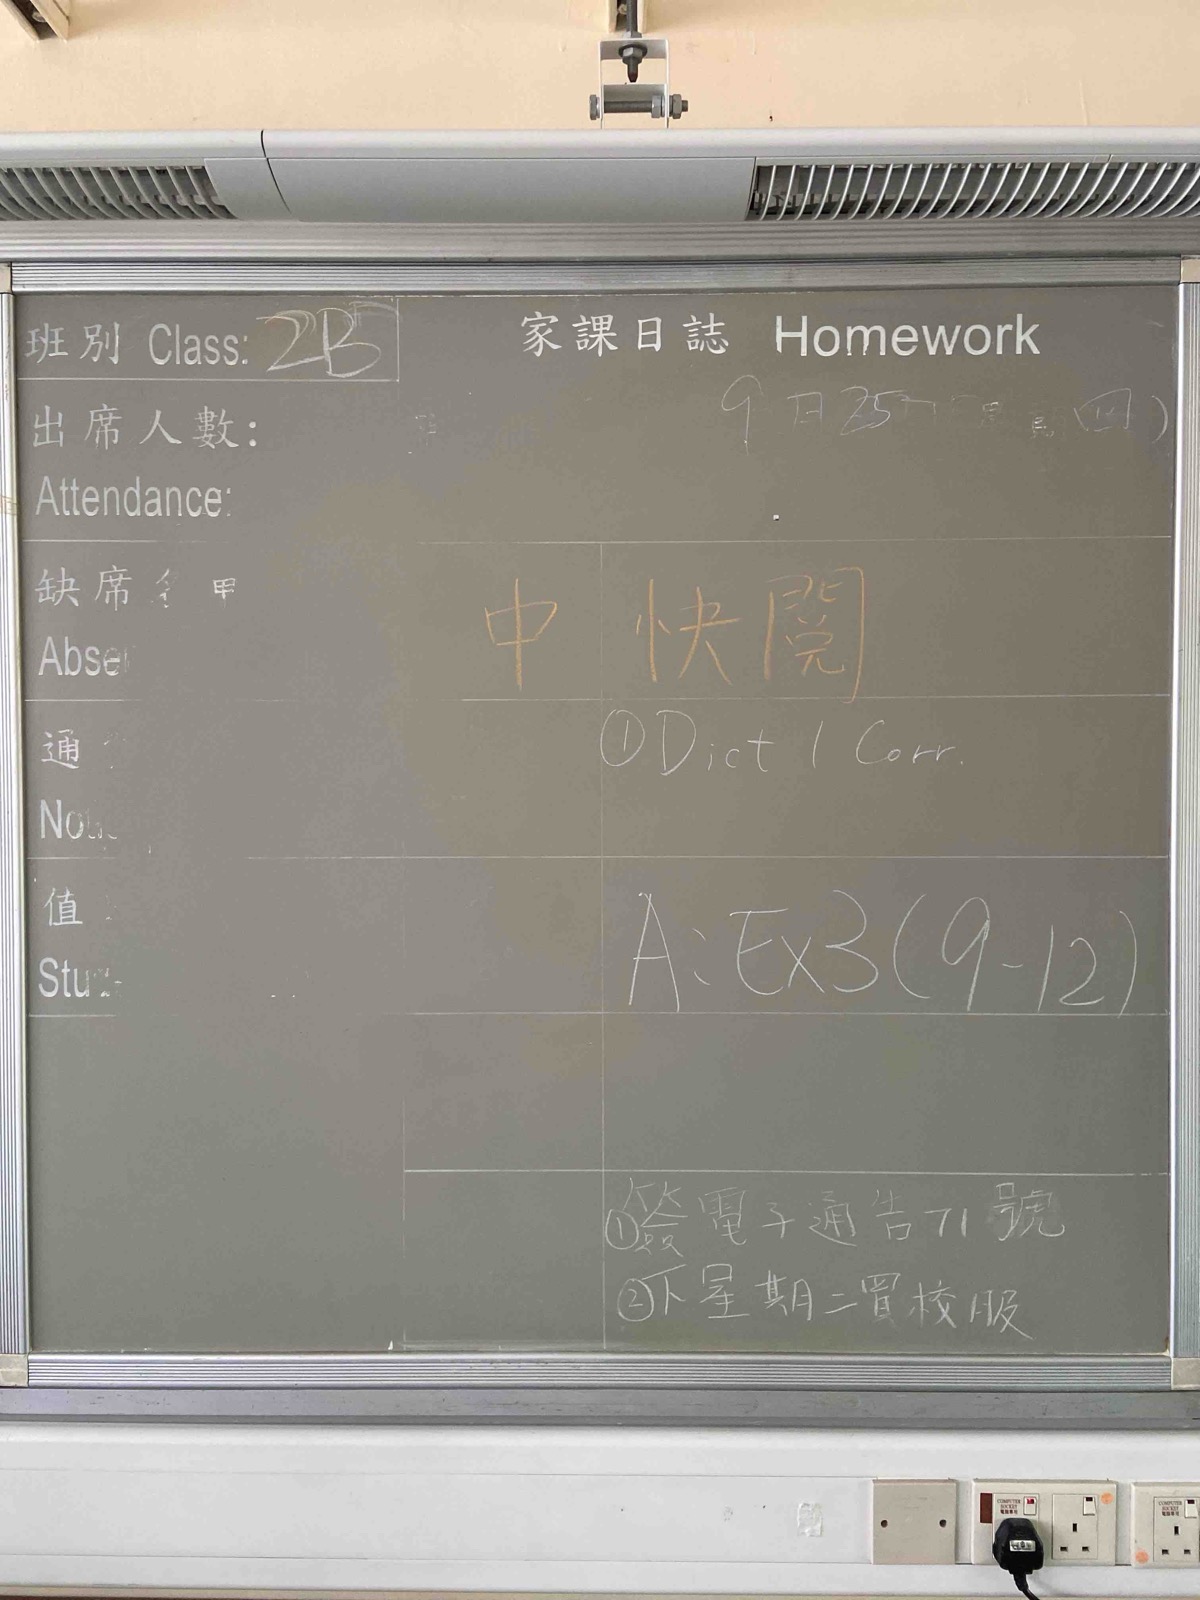 班別 Class: 2B
家課日誌 Homework
9月25日(星期四)
出席人數:
Attendance:
缺席
Abse
中 快閱
通
No
① Dict 1 Corr.
值
A: Ex3 (9-12)
Stu
①簽電子通告71號
②下星期二買校服
COMPUTER SOCKET
電腦專用
COMPUTER SOCKET
電腦專用